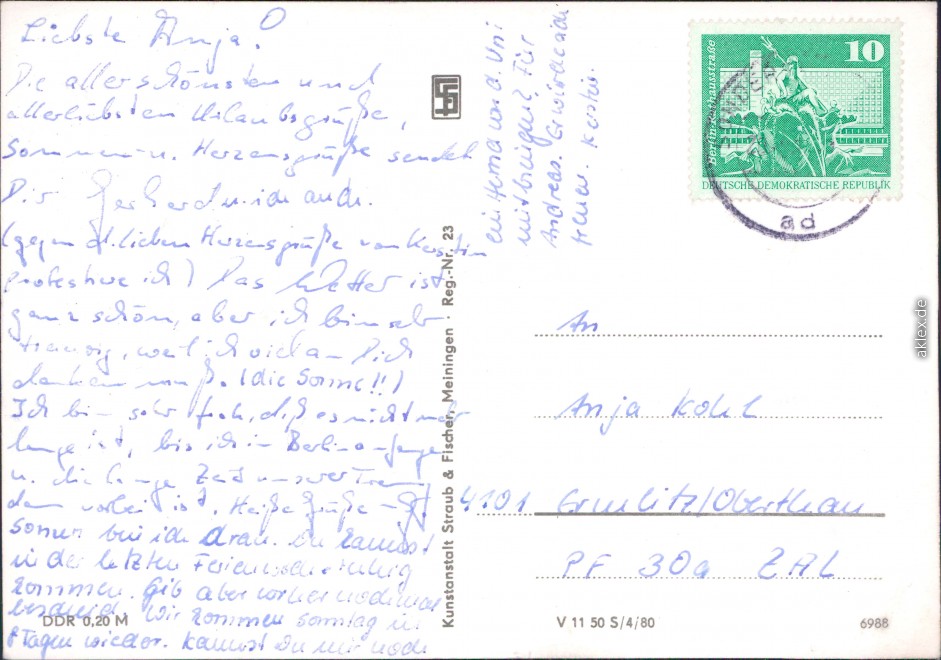 Liebste Anja!
Die allerschönsten und
allerliebsten Urlaubsgrüße,
Sommer u. Herzensgrüße sendet
Dir Gerhard. u. ich auch.
(gegen d. lieben Herzensgrüße von Kerstin
protestiere ich) Das Wetter ist
ganz schön, aber ich bin sehr
traurig, weil ich viel an Dich
denken muß. (die Sonne!!)
Ich bin sehr froh, daß es nicht mehr
lange ist, bis ich in Berlin anfange
u. die lange Zeit unserer Trennung
dann vorbei ist. Heiße Grüße
bin ich dran. Du kannst
in der letzten Ferienwoche ruhig
kommen. Gib aber vorher nochmal
bescheid. Wir kommen Sonntag in
8 Tagen wieder. Kannst Du mir noch
ein Hemd von d. Uni
mitbringen? Für
Andreas.
Kerstin.
Kunstanstalt Straub & Fischer, Meiningen · Reg.-Nr. 23
10
Berlin-Rathausstraße
DEUTSCHE DEMOKRATISCHE REPUBLIK
ad
An
Anja Kohl
4101 Ermlitz/Oberthau
PF 30a ZAL
DDR 0,20 M
V 11 50 S/4/80
6988
aklex.de